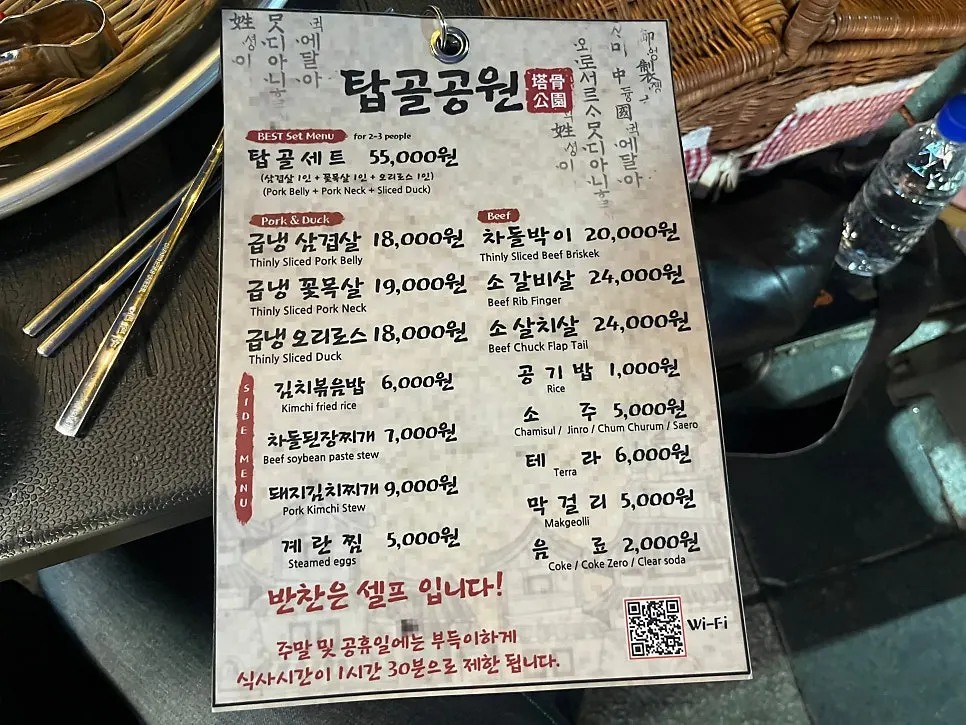 탑골공원 塔骨公園
BEST Set Menu for 2-3 people
탑골세트 55,000원
(삼겹살 1인 + 꽃목살 1인 + 오리로스 1인)
(Pork Belly + Pork Neck + Sliced Duck)
Pork & Duck
급냉 삼겹살 18,000원
Thinly Sliced Pork Belly
급냉 꽃목살 19,000원
Thinly Sliced Pork Neck
급냉 오리로스 18,000원
Thinly Sliced Duck
Beef
차돌박이 20,000원
Thinly Sliced Beef Briskek
소갈비살 24,000원
Beef Rib Finger
소살치살 24,000원
Beef Chuck Flap Tail
SIDE MENU
김치볶음밥 6,000원
Kimchi fried rice
차돌된장찌개 7,000원
Beef soybean paste stew
돼지김치찌개 9,000원
Pork Kimchi Stew
계란찜 5,000원
Steamed eggs
공기밥 1,000원
Rice
소주 5,000원
Chamisul / Jinro / Chum Churum / Saero
테라 6,000원
Terra
막걸리 5,000원
Makgeolli
음료 2,000원
Coke / Coke Zero / Clear soda
반찬은 셀프 입니다!
주말 및 공휴일에는 부득이하게
식사시간이 1시간 30분으로 제한 됩니다.
Wi-Fi